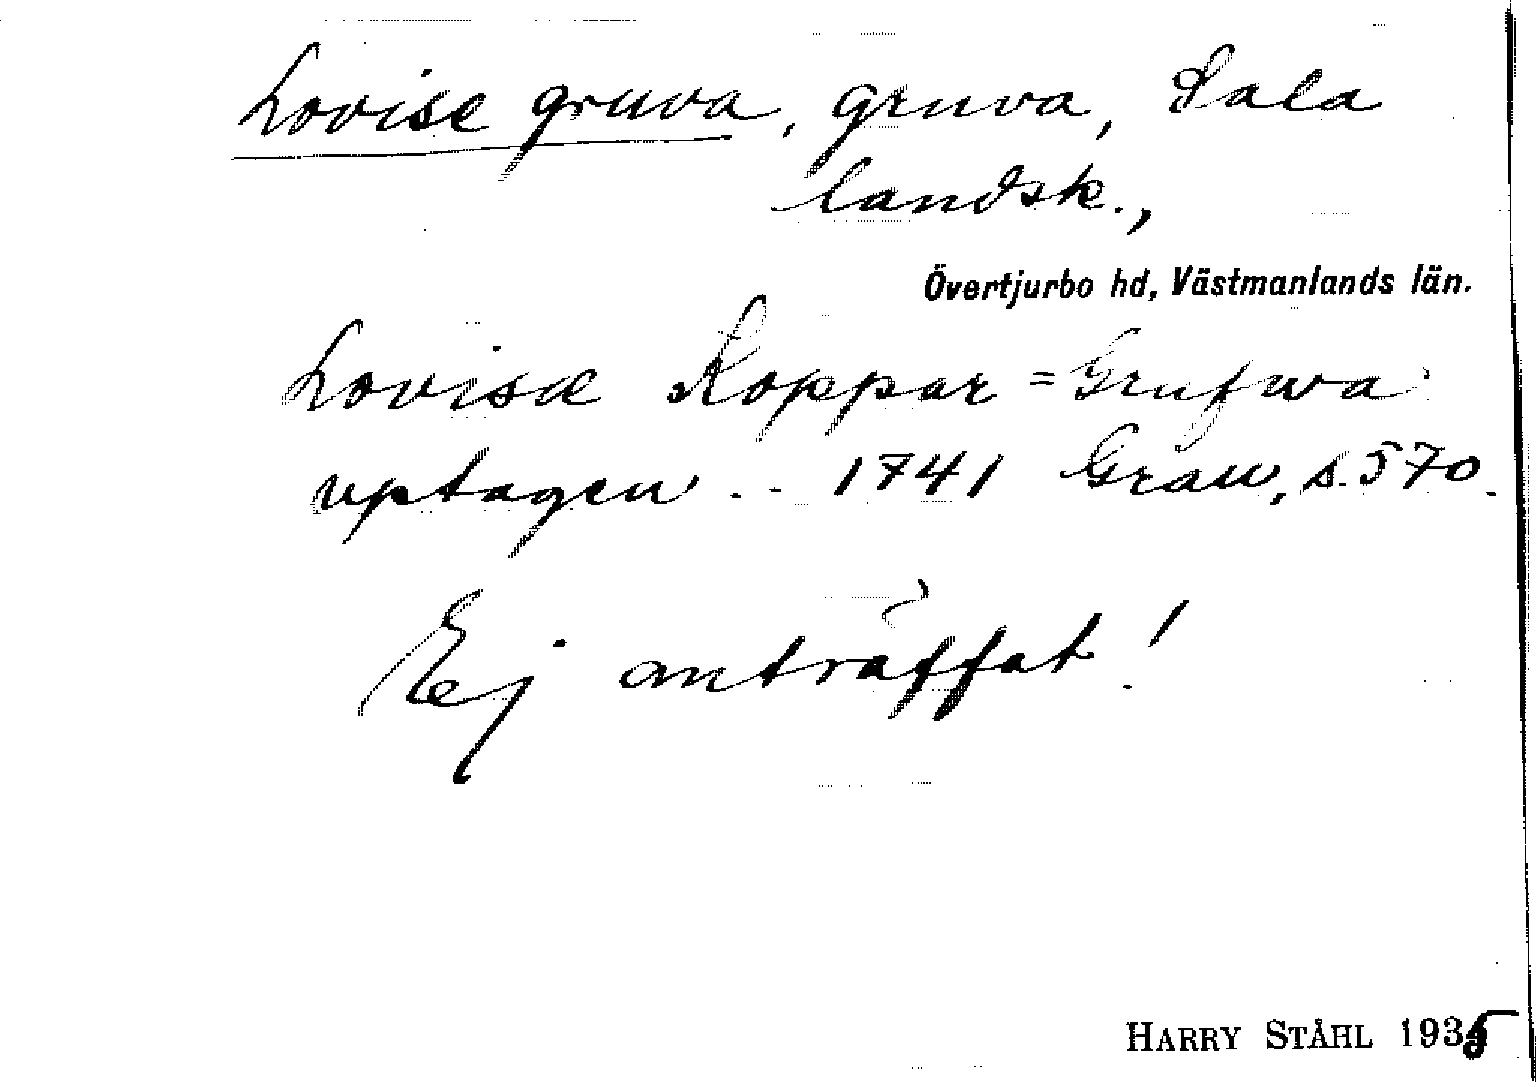 Lovise gruva, gruva, Sala
landsk.,
Övertjurbo hd, Västmanlands län.
Lovisæ Koppar=Grufwa
uptagen . . 1741 Grau, s. 570.
Ej anträffat!
HARRY STÅHL 1935